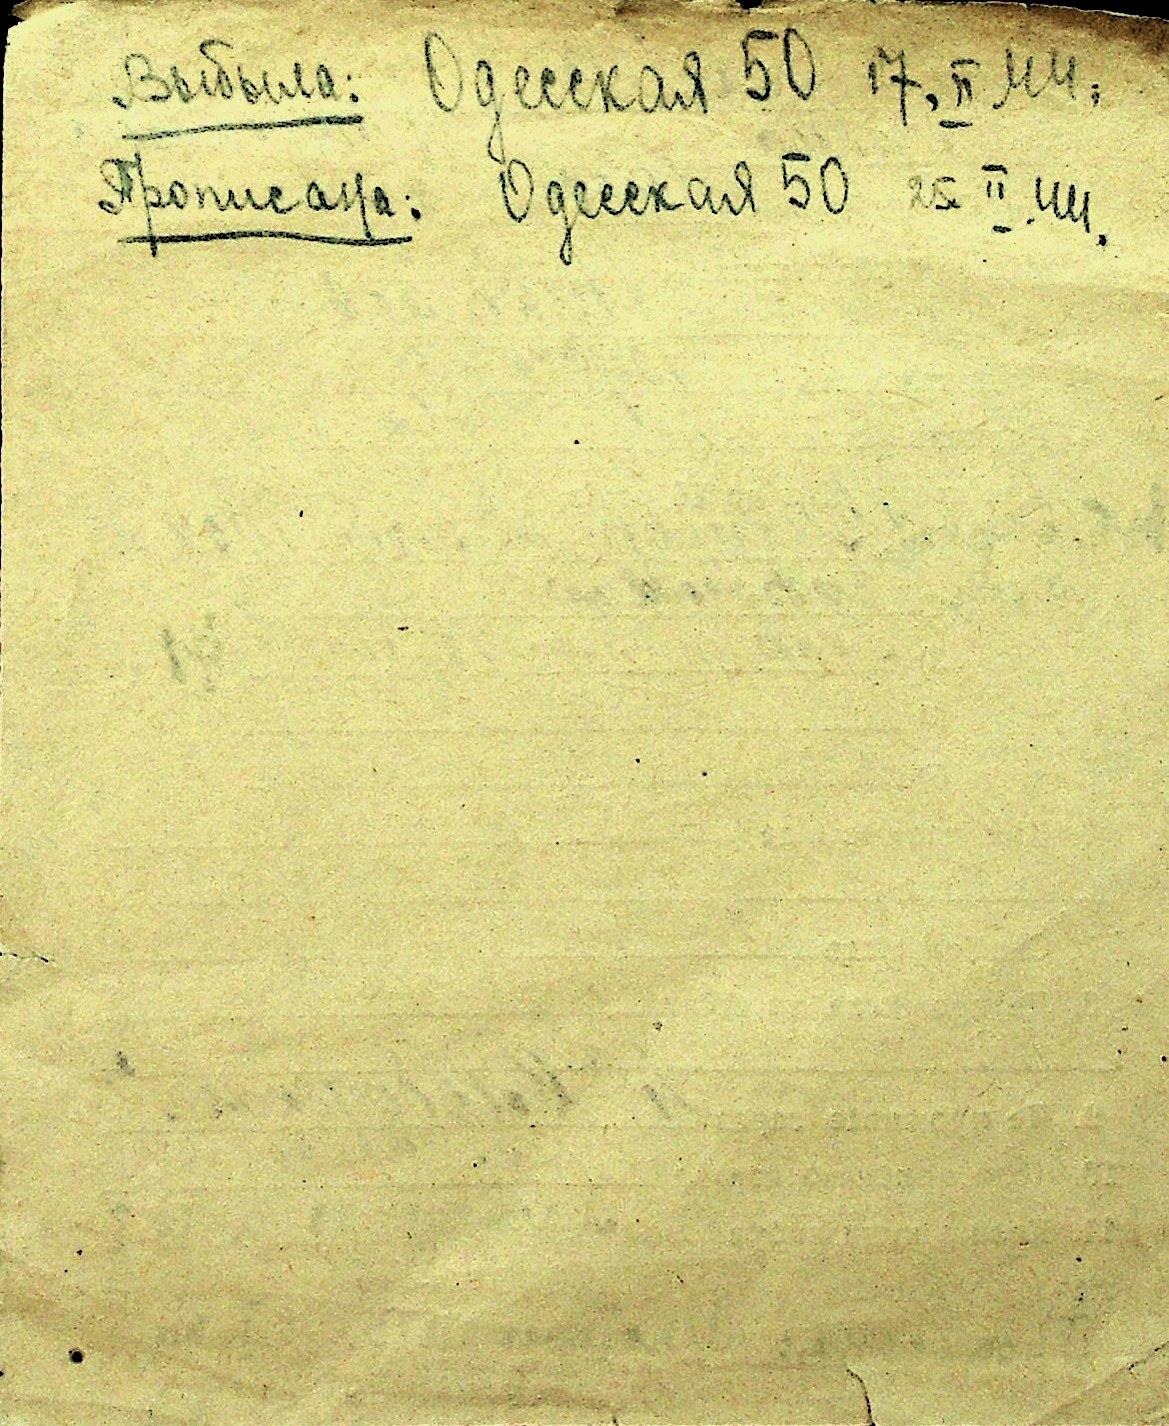 Выбыла: Одесская 50 17.II 44.
Прописана: Одесская 50 25 II 44.